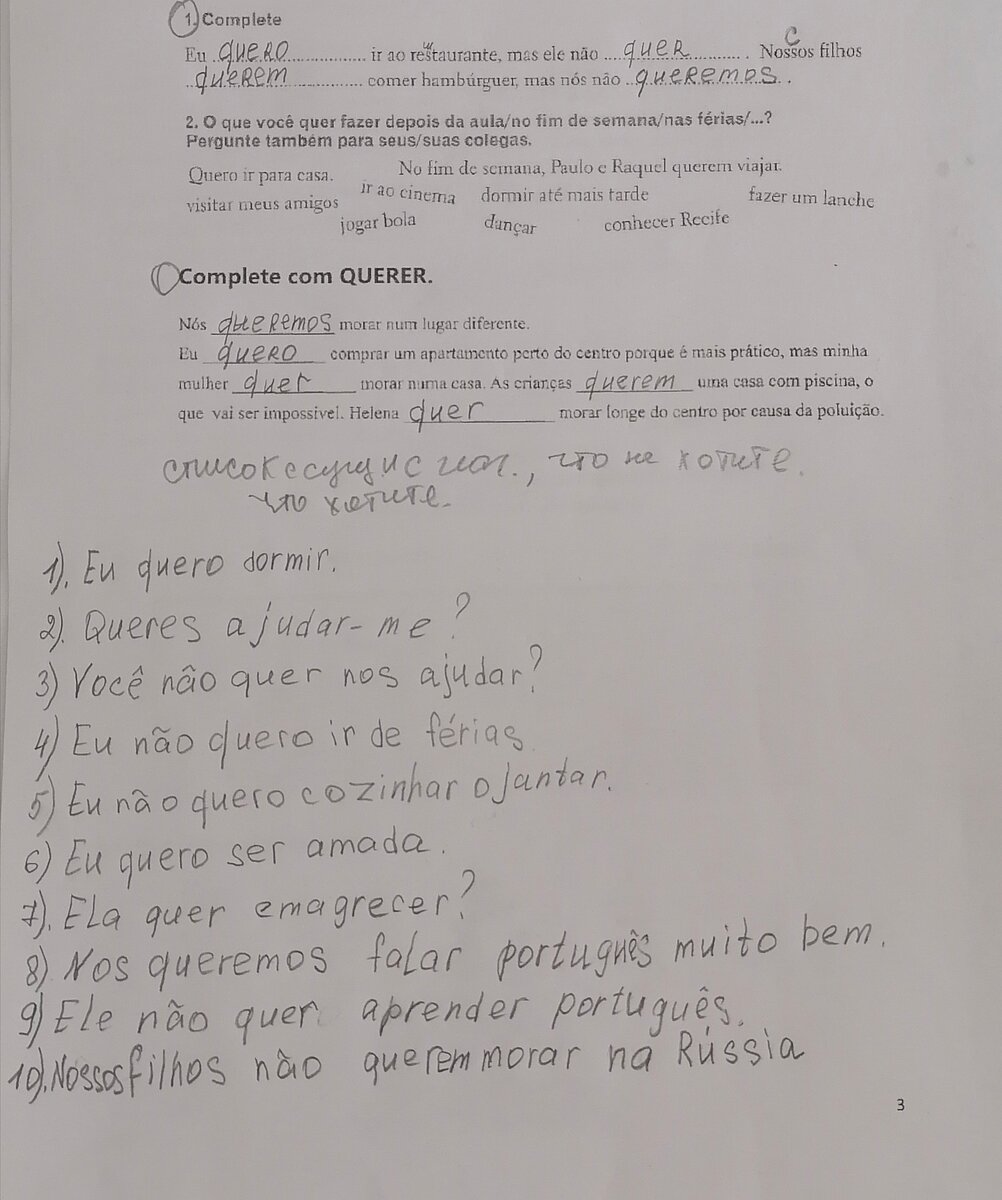 1. Complete
Eu quero ir ao restaurante, mas ele não quer. Nossos filhos
querem comer hambúrguer, mas nós não queremos.
2. O que você quer fazer depois da aula/no fim de semana/nas férias/...?
Pergunte também para seus/suas colegas.
Quero ir para casa. No fim de semana, Paulo e Raquel querem viajar.
visitar meus amigos ir ao cinema dormir até mais tarde fazer um lanche
jogar bola dançar conhecer Recife
Complete com QUERER.
Nós queremos morar num lugar diferente.
Eu quero comprar um apartamento perto do centro porque é mais prático, mas minha
mulher quer morar numa casa. As crianças querem uma casa com piscina, o
que vai ser impossível. Helena quer morar longe do centro por causa da poluição.
список сущ и с гл., что не хотите.
что хотите.
1). Eu quero dormir.
2). Queres ajudar-me?
3) Você não quer nos ajudar?
4) Eu não quero ir de férias
5) Eu não quero cozinhar o jantar.
6) Eu quero ser amada.
7). Ela quer emagrecer?
8). Nos queremos falar português muito bem.
9) Ele não quer aprender português.
10). Nossos filhos não querem morar na Rússia
3